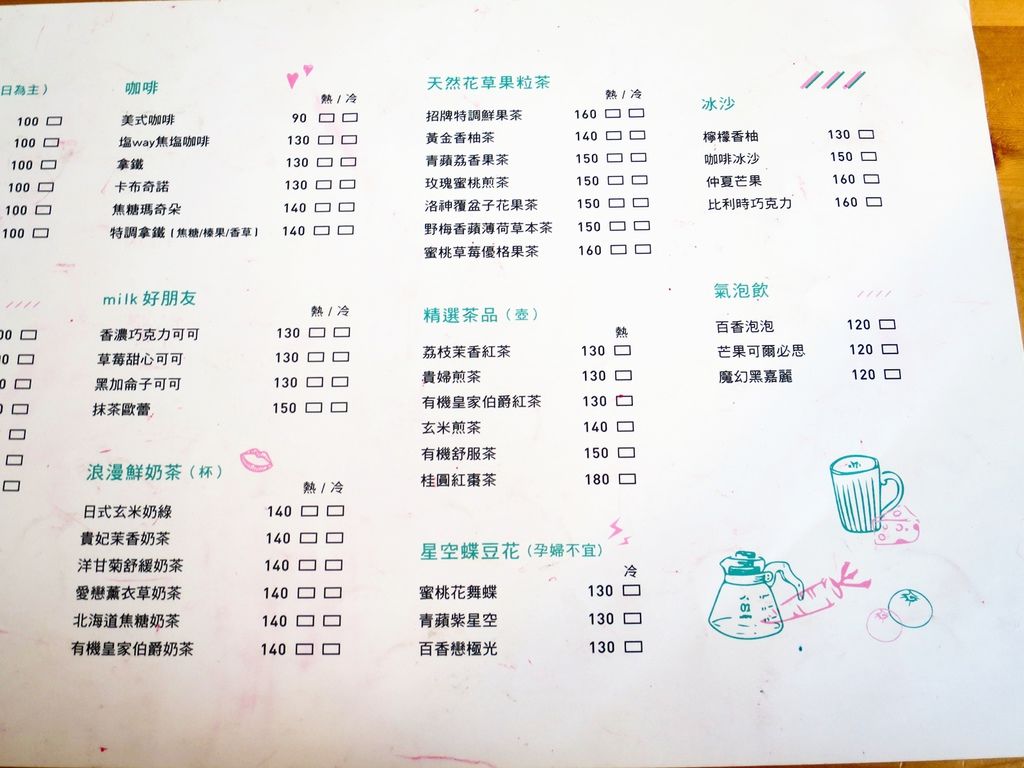 日為主）
100
100
100
100
100
100
00
00
0
0
咖啡
熱 / 冷
美式咖啡 90
塩way焦塩咖啡 130
拿鐵 130
卡布奇諾 130
焦糖瑪奇朵 140
特調拿鐵（焦糖/榛果/香草） 140
milk 好朋友
熱 / 冷
香濃巧克力可可 130
草莓甜心可可 130
黑加侖子可可 130
抹茶歐蕾 150
浪漫鮮奶茶（杯）
熱 / 冷
日式玄米奶綠 140
貴妃茉香奶茶 140
洋甘菊舒緩奶茶 140
愛戀薰衣草奶茶 140
北海道焦糖奶茶 140
有機皇家伯爵奶茶 140
天然花草果粒茶
熱 / 冷
招牌特調鮮果茶 160
黃金香柚茶 140
青蘋荔香果茶 150
玫瑰蜜桃煎茶 150
洛神覆盆子花果茶 150
野梅香蘋薄荷草本茶 150
蜜桃草莓優格果茶 160
精選茶品（壺）
熱
荔枝茉香紅茶 130
貴婦煎茶 130
有機皇家伯爵紅茶 130
玄米煎茶 140
有機舒服茶 150
桂圓紅棗茶 180
星空蝶豆花（孕婦不宜）
冷
蜜桃花舞蝶 130
青蘋紫星空 130
百香戀極光 130
冰沙
檸檬香柚 130
咖啡冰沙 150
仲夏芒果 160
比利時巧克力 160
氣泡飲
百香泡泡 120
芒果可爾必思 120
魔幻黑嘉麗 120